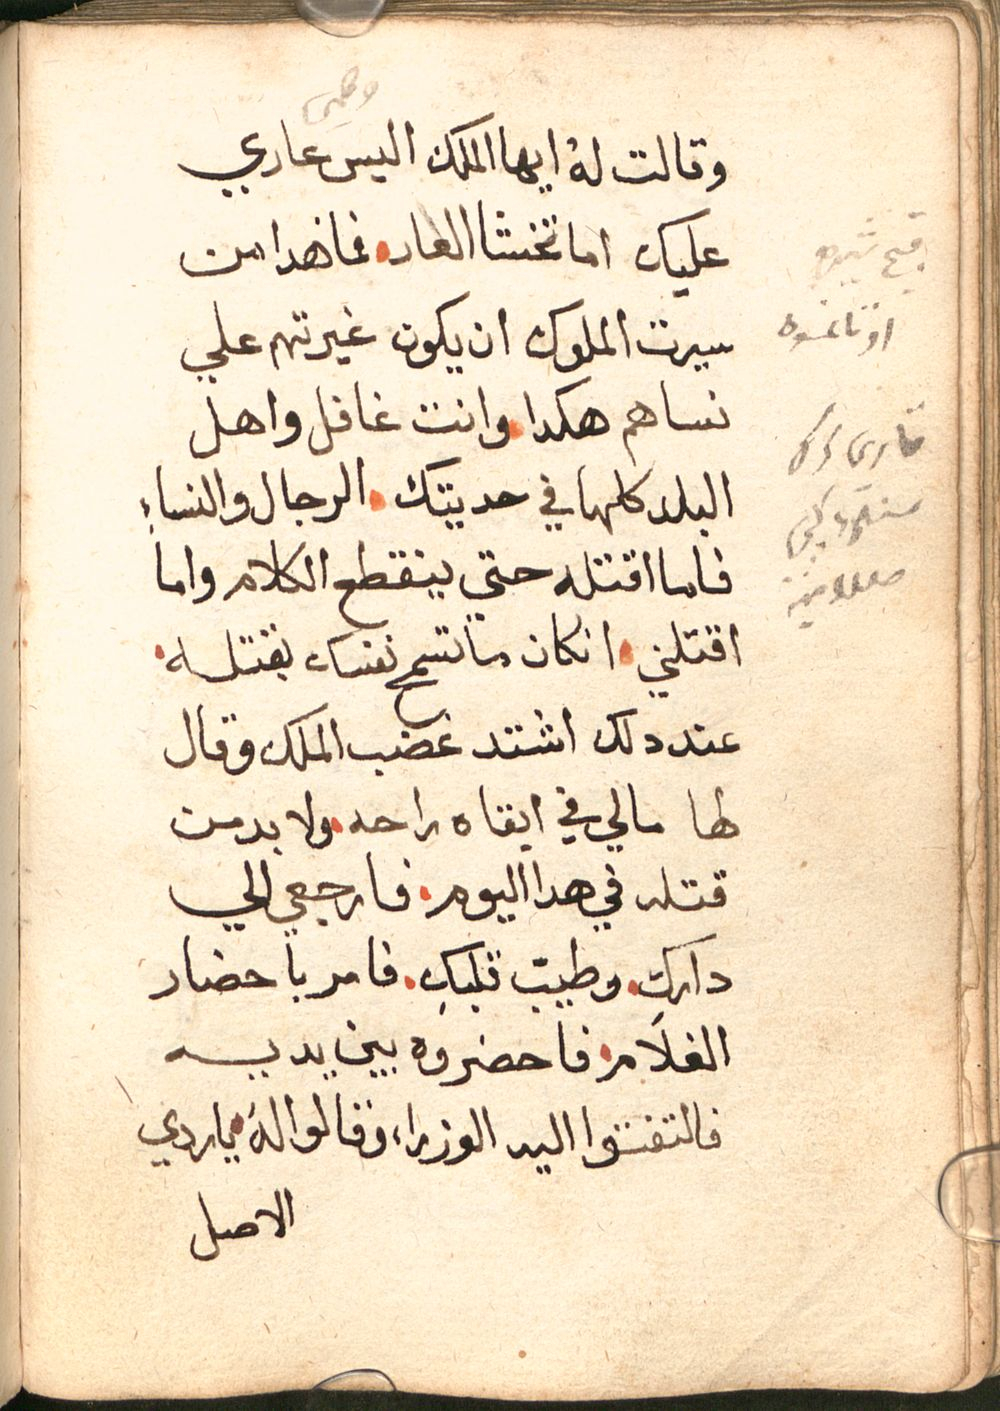 وقالت لهُ ايها الملك اليس عاري
عليك اما تخشا العار. فما هدا من
سيرت الملوك ان يكون غيرتهم علي
نساهم هكدا. وانت غافل واهل
البلد كلها في حديتك. الرجال والنساءِ
فاما اقتله حتي ينقطع الكلام واما
اقتلني. انكان ما تسمح نفسك بقتله.
عند دلك اشتد غضب الملك وقال
لها مالي في ابقاه راحه. ولا بد من
قتله في هدا اليوم. فارجعي الي
داركِ. وطيبت قلبكِ. فامر باحضار
الغلام. فاحضروه بين يديه
فالتفتوا اليه الوزراء وقالوا لهُ ياردي
الاصل